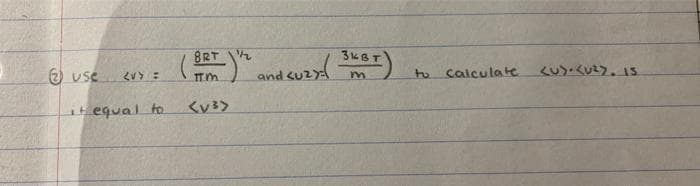 ② use <v> = (8RT/πm)^1/2 and <v2>=(3kBT/m) to calculate <v>·<v2>. is
it equal to <v3>